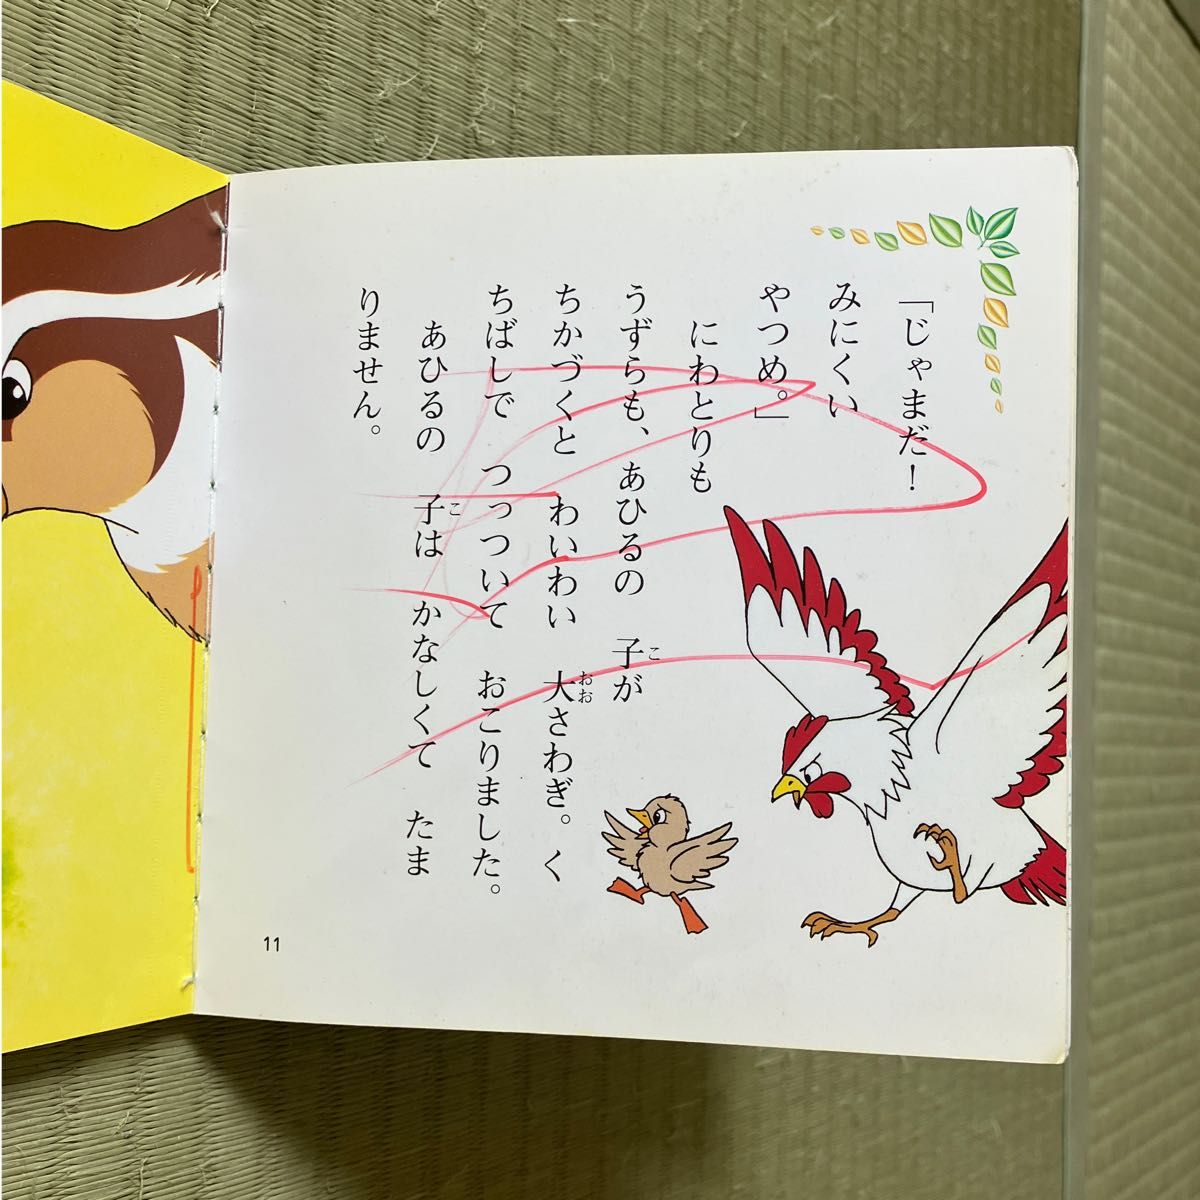 「じゃまだ!
みにくい
やつめ。」
にわとりも
うずらも、あひるの 子が
ちかづくと わいわい 大さわぎ。く
ちばしで つっついて おこりました。
あひるの 子は かなしくて たま
りません。
こ
おお
こ
11